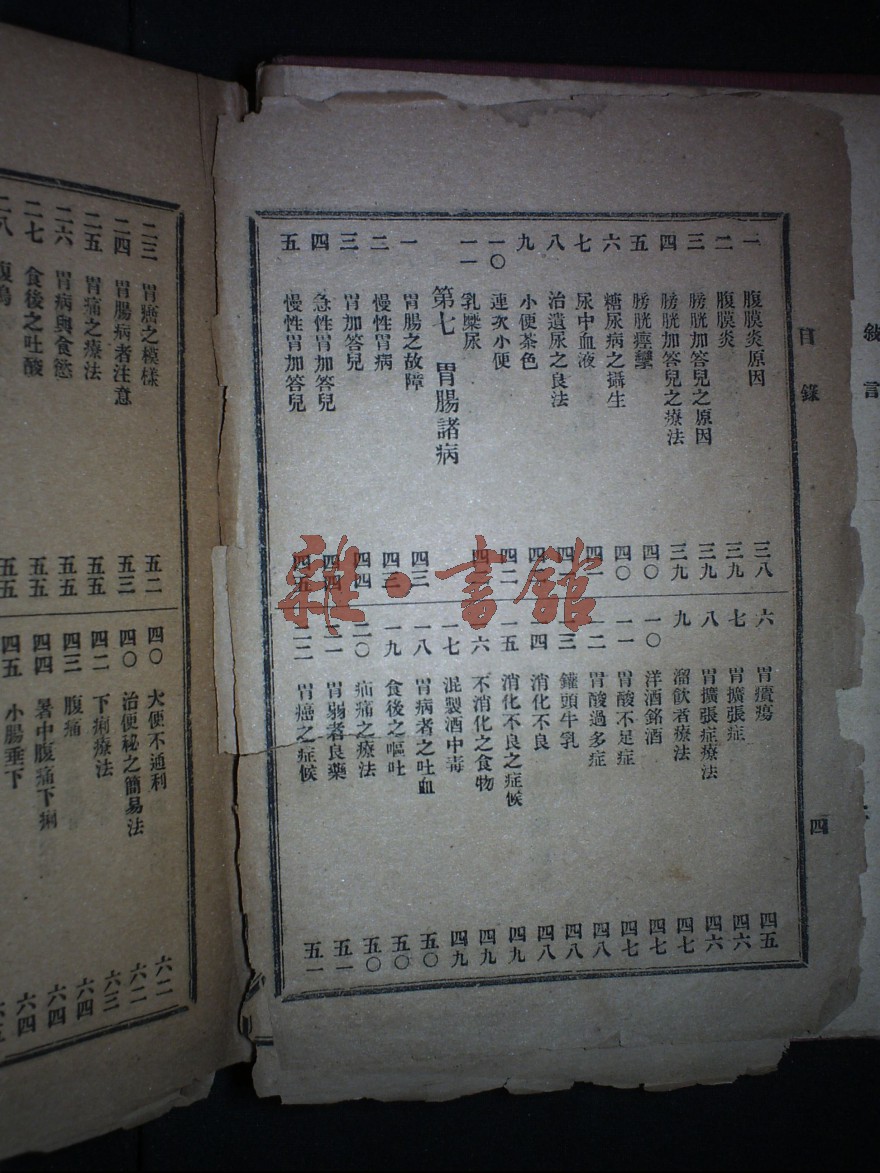 敍言
目錄
四
一 腹膜炎原因 三八
二 腹膜炎 三九
三 膀胱加答兒之原因 三九
四 膀胱加答兒之療法 三九
五 膀胱痙攣 四〇
六 糖尿病之攝生 四〇
七 尿中血液
八 治遺尿之良法
九 小便茶色
一〇 連次小便 四二
一一 乳糜尿
第七 胃腸諸病
一 胃腸之故障 四三
二 慢性胃病
三 胃加答兒
四 急性胃加答兒
五 慢性胃加答兒
六 胃潰瘍 四五
七 胃擴張症 四六
八 胃擴張症療法 四六
九 溜飲者療法 四七
一〇 洋酒銘酒 四七
一一 胃酸不足症 四七
一二 胃酸過多症 四八
一三 罐頭牛乳 四八
一四 消化不良 四八
一五 消化不良之症候 四九
一六 不消化之食物 四九
一七 混製酒中毒 四九
一八 胃病者之吐血 五〇
一九 食後之嘔吐 五〇
二〇 疝痛之療法 五〇
二一 胃弱者良藥 五一
二二 胃癌之症候 五一
二三 胃癌之模樣 五二
二四 胃腸病者注意 五三
二五 胃痛之療法 五五
二六 胃病與食慾 五五
二七 食後之吐酸 五五
二八 腹鳴 五五
四〇 大便不通利 六二
四〇 治便秘之簡易法 六二
四二 下痢療法 六三
四三 腹痛 六四
四四 暑中腹痛下痢 六四
四五 小腸垂下 六四
雜·書館